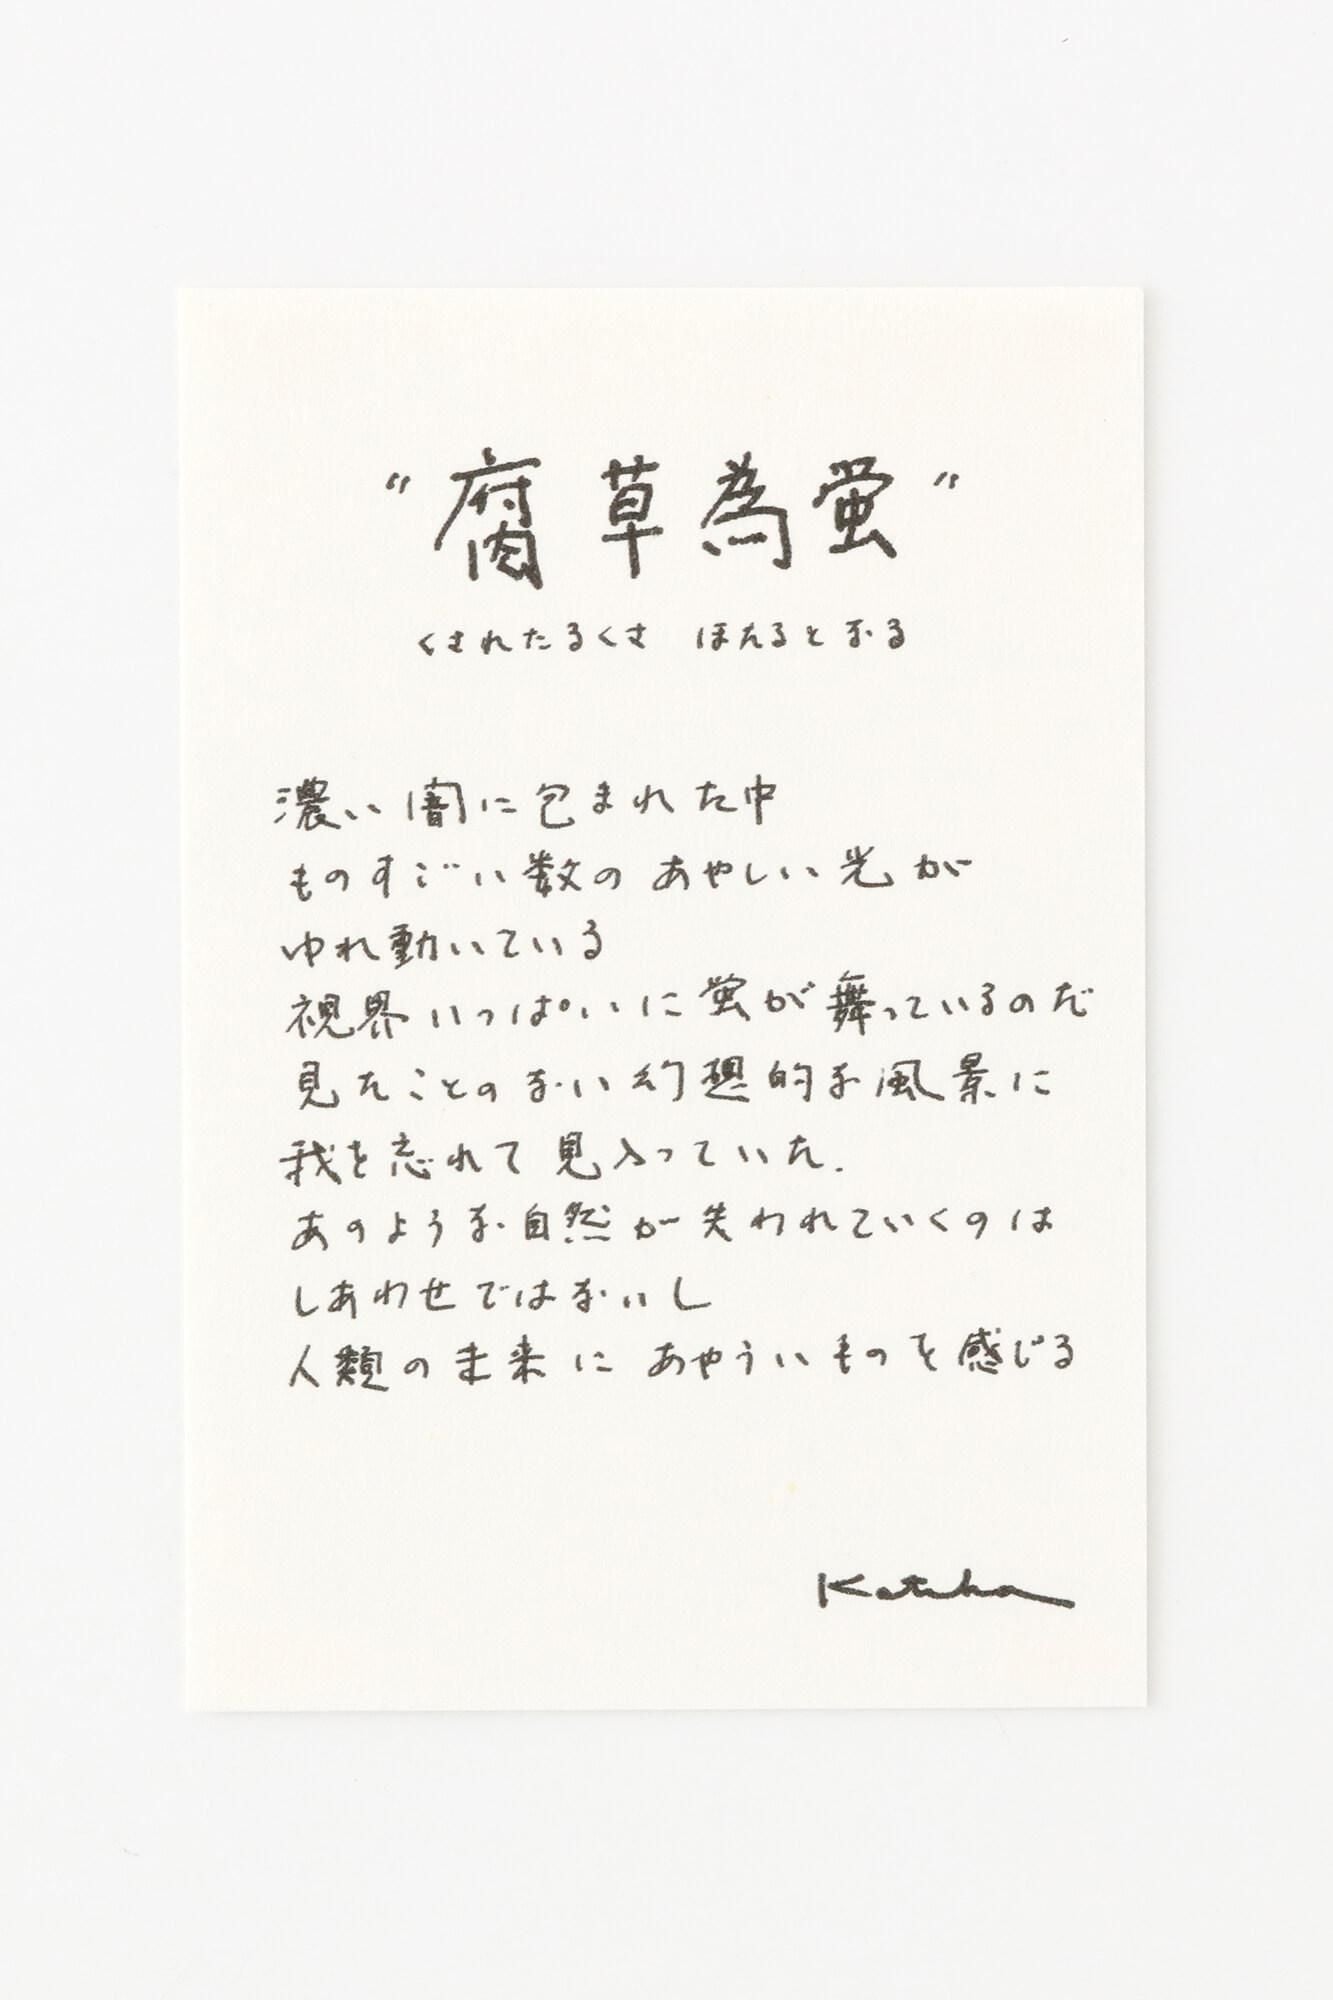 "腐草為蛍"
くされたるくさ ほたるとなる
濃い闇に包まれた中
ものすごい数のあやしい光が
ゆれ動いている
視界いっぱいに蛍が舞っているのだ
見たことのない幻想的な風景に
我を忘れて見入っていた.
あのような自然が失われていくのは
しあわせではないし
人類の未来にあやういものを感じる